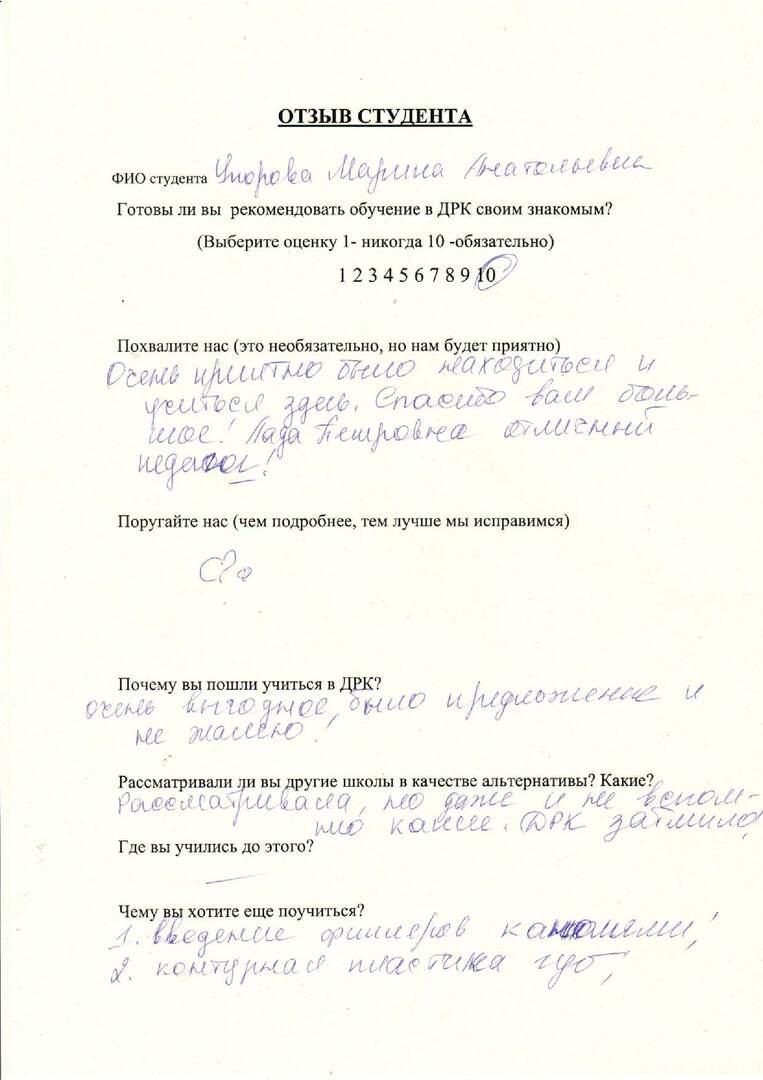 ОТЗЫВ СТУДЕНТА
ФИО студента Упорова Марина Анатольевна
Готовы ли вы рекомендовать обучение в ДРК своим знакомым?
(Выберите оценку 1- никогда 10 -обязательно)
1 2 3 4 5 6 7 8 9 10
Похвалите нас (это необязательно, но нам будет приятно)
Очень приятно было находиться и
учиться здесь. Спасибо вам боль-
шое! Лада Петровна отличный
педагог!
Поругайте нас (чем подробнее, тем лучше мы исправимся)
Почему вы пошли учиться в ДРК?
очень выгодное было предложение и
не жалею!
Рассматривали ли вы другие школы в качестве альтернативы? Какие?
Рассматривала, но даже и не вспом-
ню какие. ДРК затмило!
Где вы учились до этого?
—
Чему вы хотите еще поучиться?
1. введение филлеров канюлями!
2. контурная пластика губ!